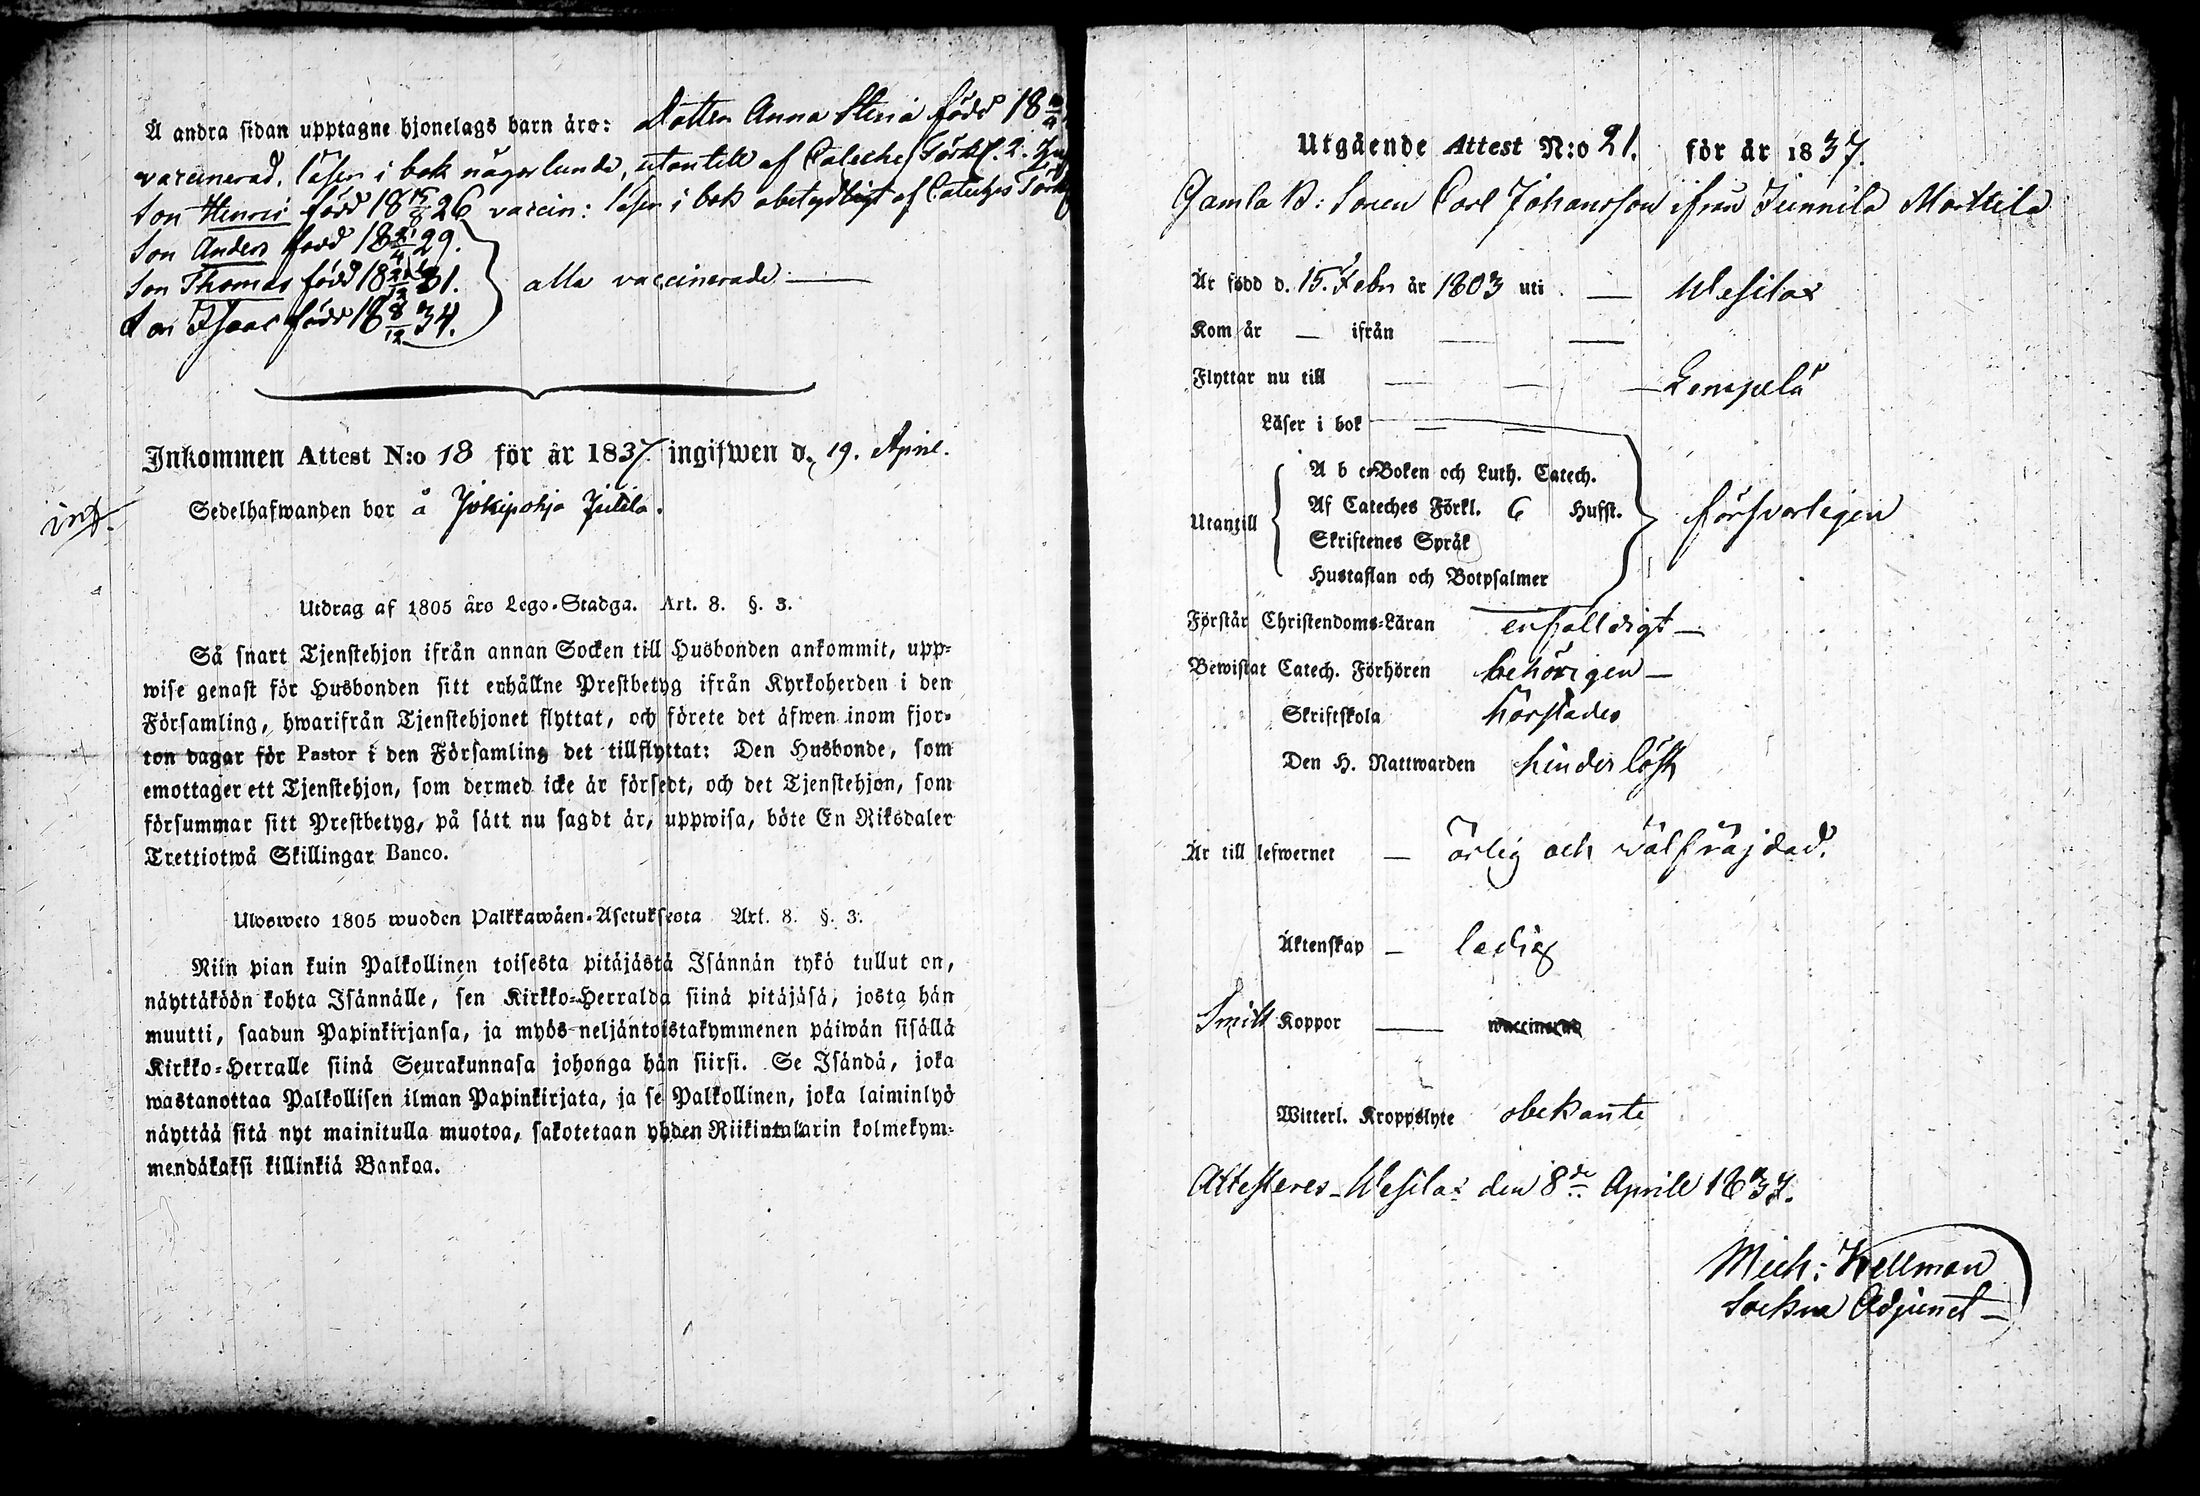 Å andra sidan upptagne hjonelags barn äro: Dotter Anna Stina född 18
vaccinerad, läser i bok någorlunda, utantill af Cateches Förkl. 2.
Son Henric född 18 15/8 26 vaccin: läser i bok obetydligt af Cateches Förkl
Son Anders född 18 4 29.
Son Thomas född 18 21/12 31.
alla vaccinerade
Son Isaac född 18 8/12 34.
Inkommen Attest N:o 18 för år 1837 ingifwen d. 19. April.
Sedelhafwanden bor å Jokipohja Jutila.
int.
Utdrag af 1805 åro Lego-Stadga. Art. 8. §. 3.
Så snart Tjenstehjon ifrån annan Socken till Husbonden ankommit, upp-
wise genast för Husbonden sitt erhållne Prestbetyg ifrån Kyrkoherden i den
Församling, hwarifrån Tjenstehjonet flyttat, och förete det äfwen inom fjor-
ton dagar för Pastor i den Församling det tillflyttat: Den Husbonde, som
emottager ett Tjenstehjon, som dermed icke är försedt, och det Tjenstehjon, som
försummar sitt Prestbetyg, på sätt nu sagdt är, uppwisa, böte En Riksdaler
Trettiotwå Skillingar Banco.
Uloswеto 1805 wuoden Palkkawäen-Asetuksesta Art. 8. §. 3.
Niin pian kuin Palkollinen toisesta pitäjästä Isännän tykö tullut on,
näyttäköön kohta Isännälle, sen Kirkko-Herralda siinä pitäjäsä, josta hän
muutti, saadun Papinkirjansa, ja myös neljäntoistakymmenen päiwän sisällä
Kirkko-Herralle siinä Seurakunnasa johonga hän siirsi. Se Isändä, joka
wastanottaa Palkollisen ilman Papinkirjata, ja se Palkollinen, joka laiminlyö
näyttää sitä nyt mainitulla muotoa, sakotetaan yhden Riikintalarin kolmekym-
mendäkaksi killinkiä Bankoa.
Utgående Attest N:o 21. för år 1837.
Gamla B: Sonen Carl Johansson ifrån Junnila Marttila
Är född d. 15. Febr år 1803 uti — Wesilax
Kom år — ifrån — —
Flyttar nu till — — — Lempelä
Läser i bok — —
A b c-Boken och Luth. Catech.
Utantill Af Cateches Förkl. 6 Hufst. försvarligen
Skriftenes Språk
Hustaflan och Botpsalmer
Förstår Christendoms-Läran enfalldigt —
Bewistat Catech. Förhören behörigen —
Skriftskola
Den H. Nattwarden hinderlöst
Är till lefwernet — ärlig och wälfräjdad.
Äktenskap — ledig
Smitt Koppor — waccinerad
Witterl. Kroppslyte obekante
Attesteres Wesilax den 8de Aprill 1837.
Mich: Hellman
Sockne Adjunct —